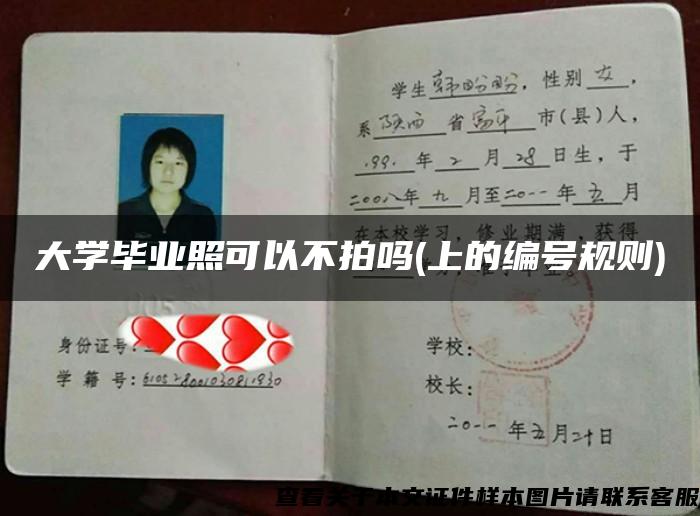 学生韩盼盼，性别女，
系陕西省富平市(县)人，
199.年2月28日生，于
二00八年九月至二0一一年五月
在本校学习，修业期满，获得
大学毕业照可以不拍吗(上的编号规则)
身份证号:
学籍号:
学校:
校长:
二0一一年五月二十日
查看关于本文证件样本图片请联系客服